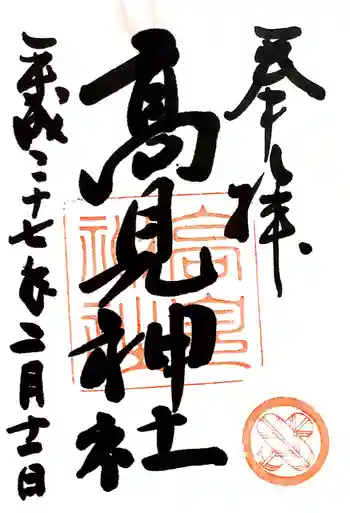 奉拝
高見神社
平成二十七年二月十一日
高見神社